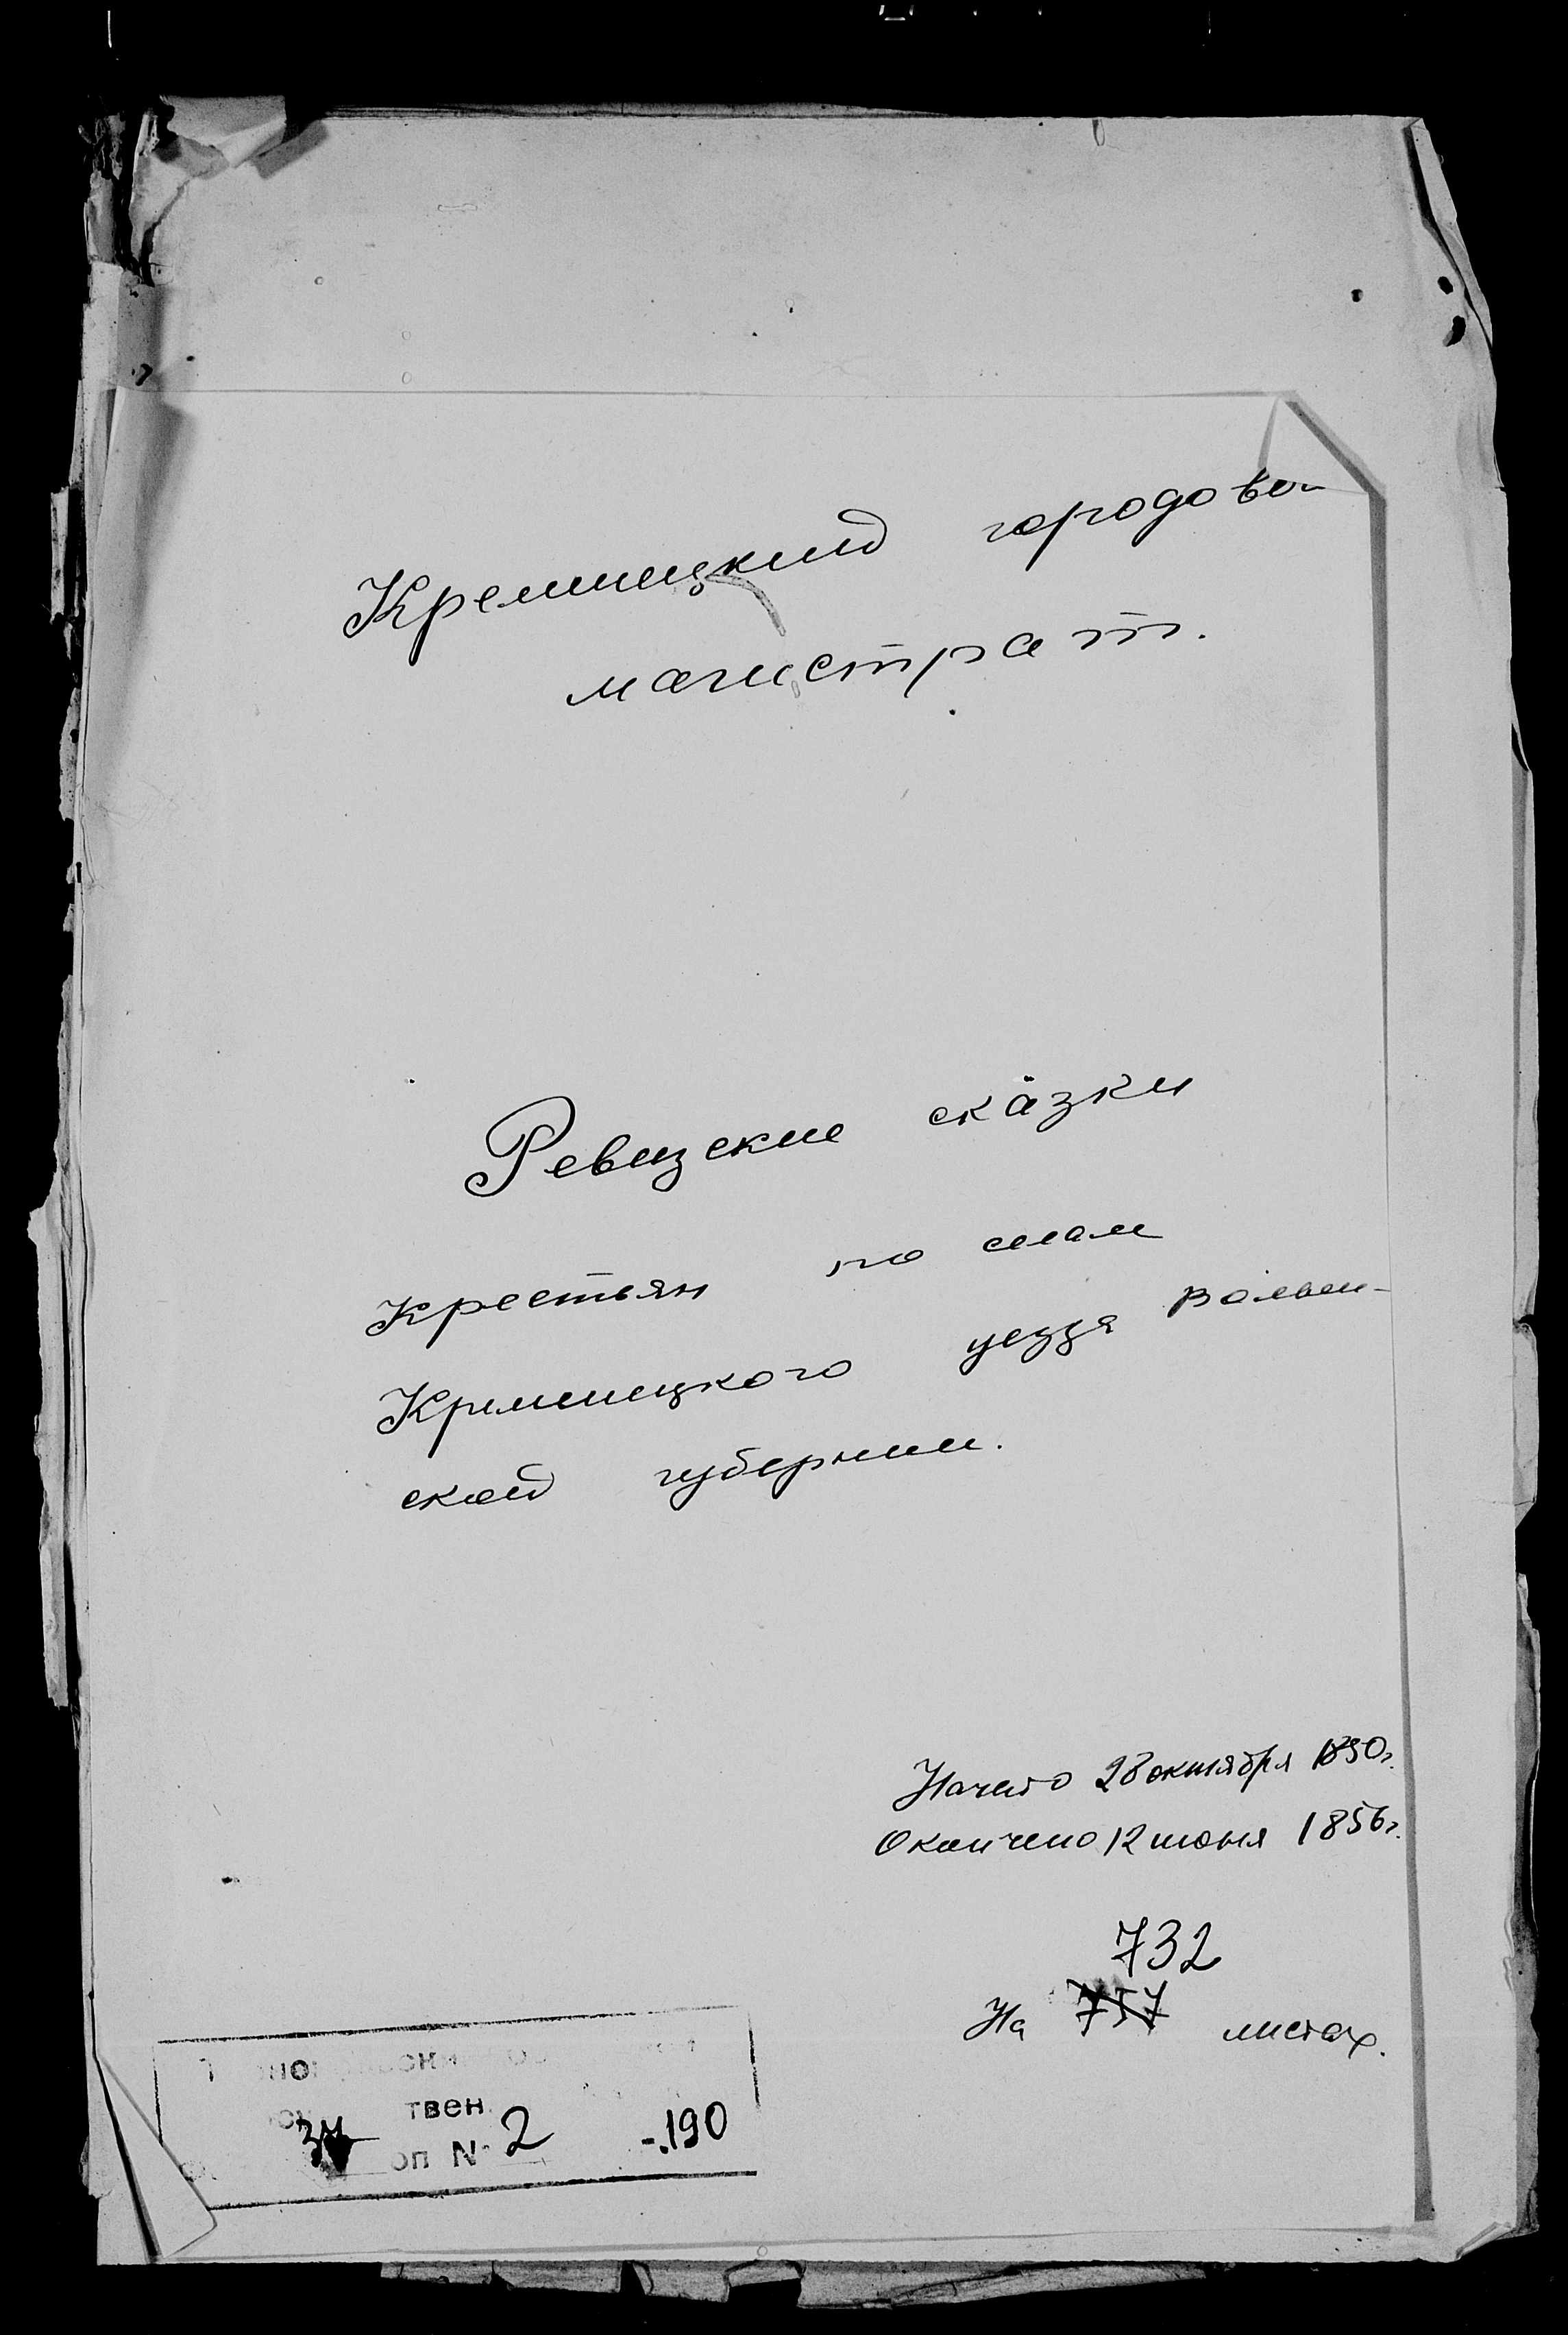 Кременецкий городовой
магистрат.
Ревизские сказки
крестьян по селам
Кременецкого уезда Волын-
ской губернии.
Начато 28 октября 1850г.
Окончено 12 июня 1856г.
732
На 757 листах.
твен
оп № 2 190